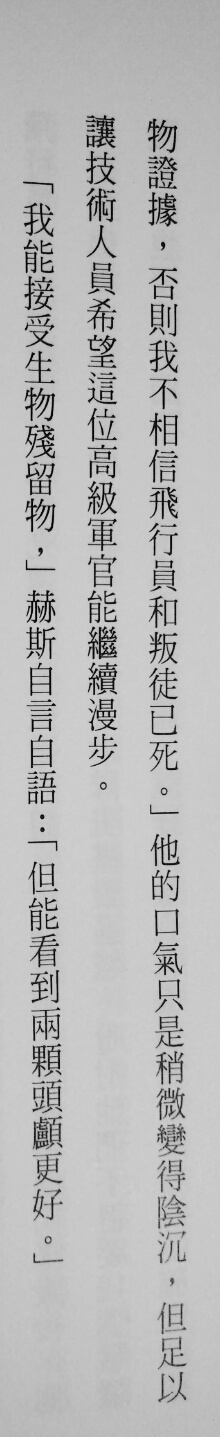 物證據，否則我不相信飛行員和叛徒已死。」他的口氣只是稍微變得陰沉，但足以
讓技術人員希望這位高級軍官能繼續漫步。
「我能接受生物殘留物，」赫斯自言自語：「但能看到兩顆頭顱更好。」